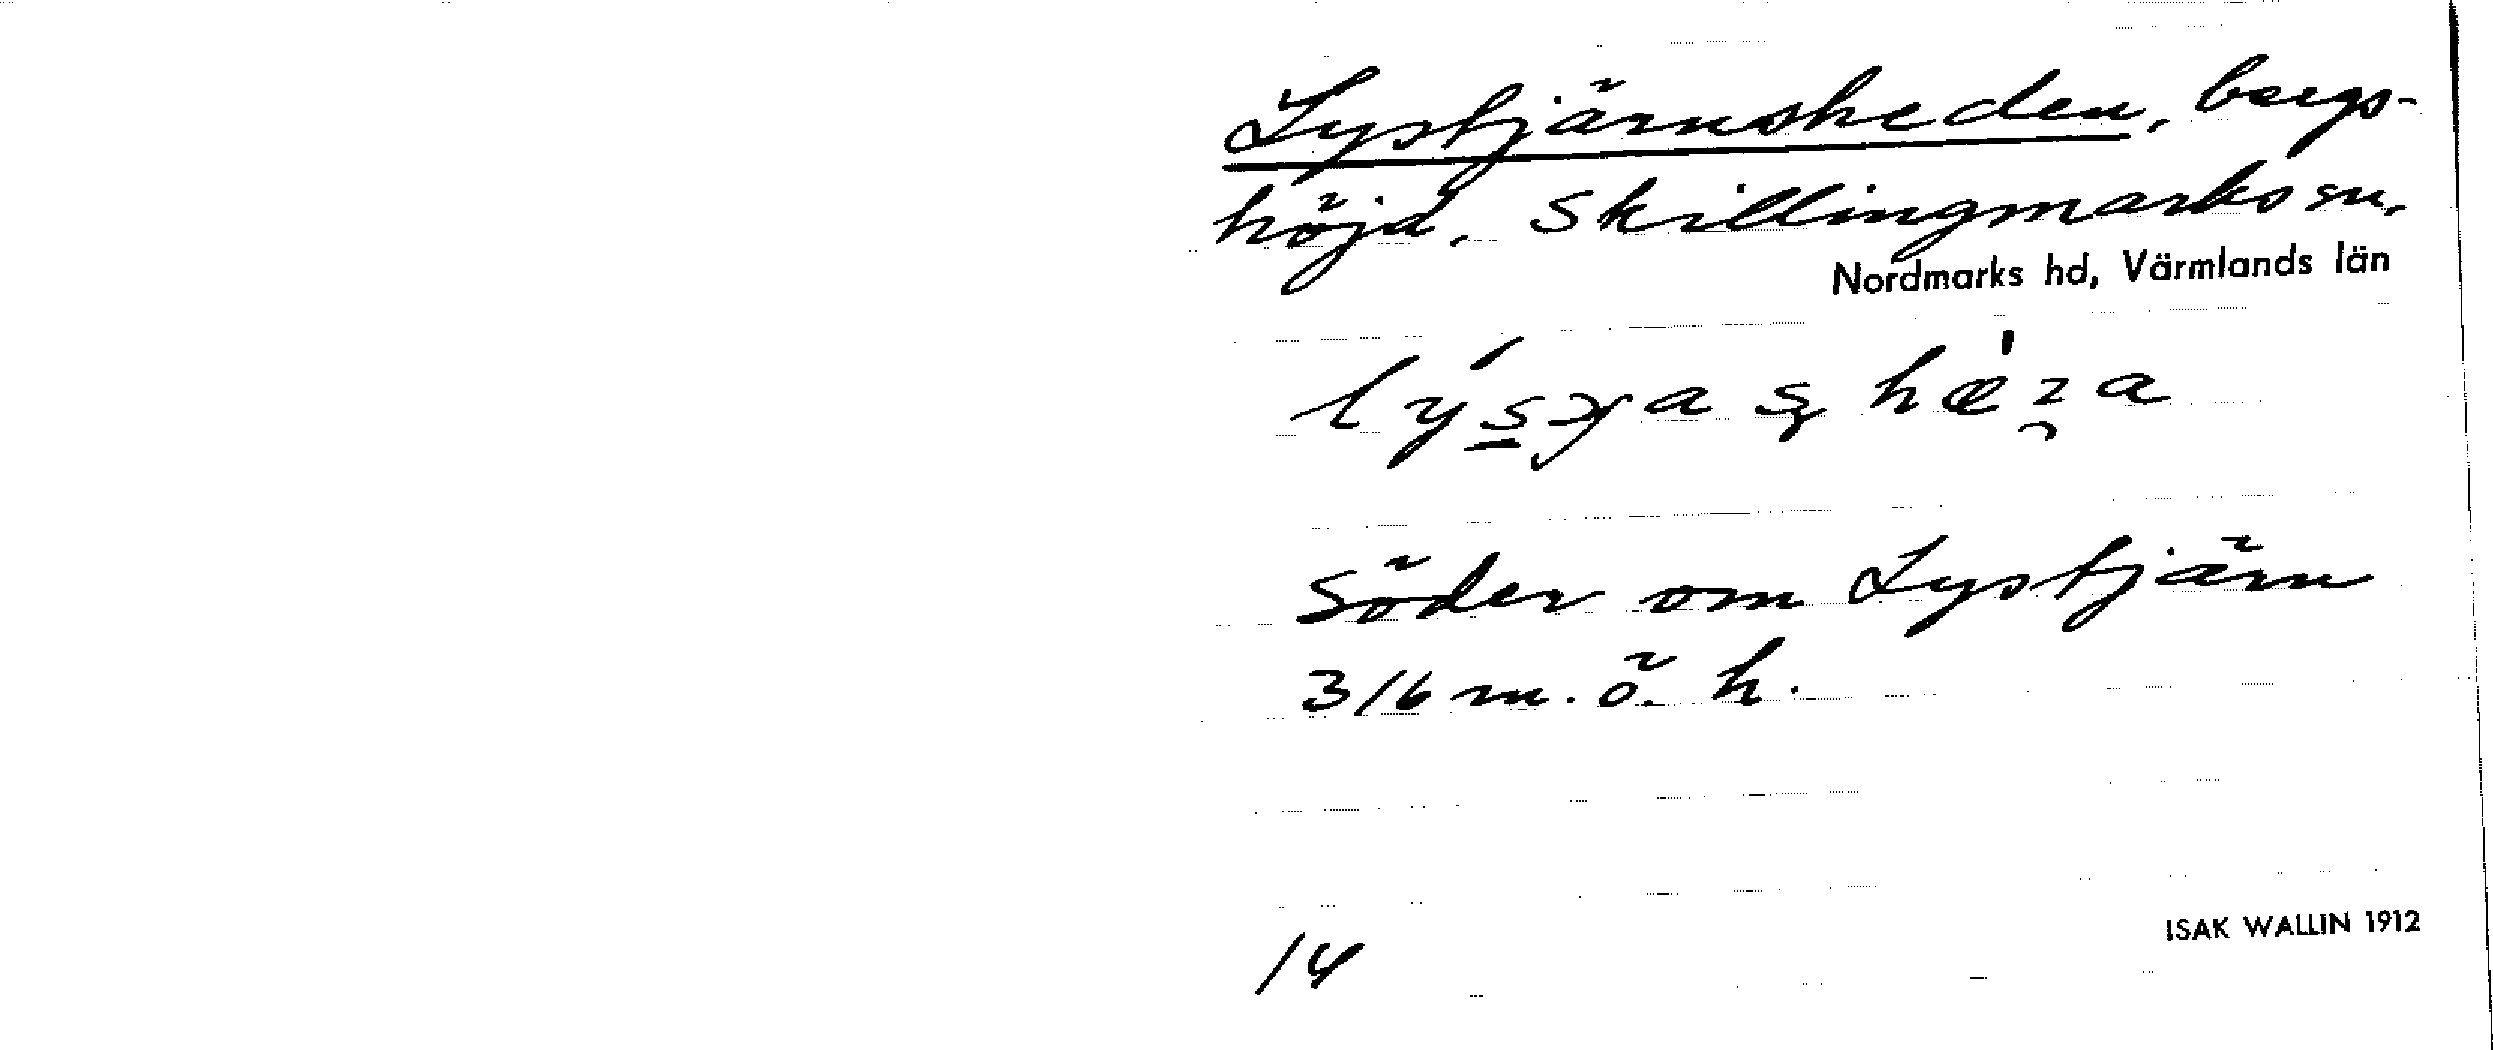 Lystjärnsheden, bergs-
höjd, Skillingmarks sn,
Nordmarks hd, Värmlands län
Söder om Lystjärn
316 m. ö. h.
ISAK WALLIN 1912
14